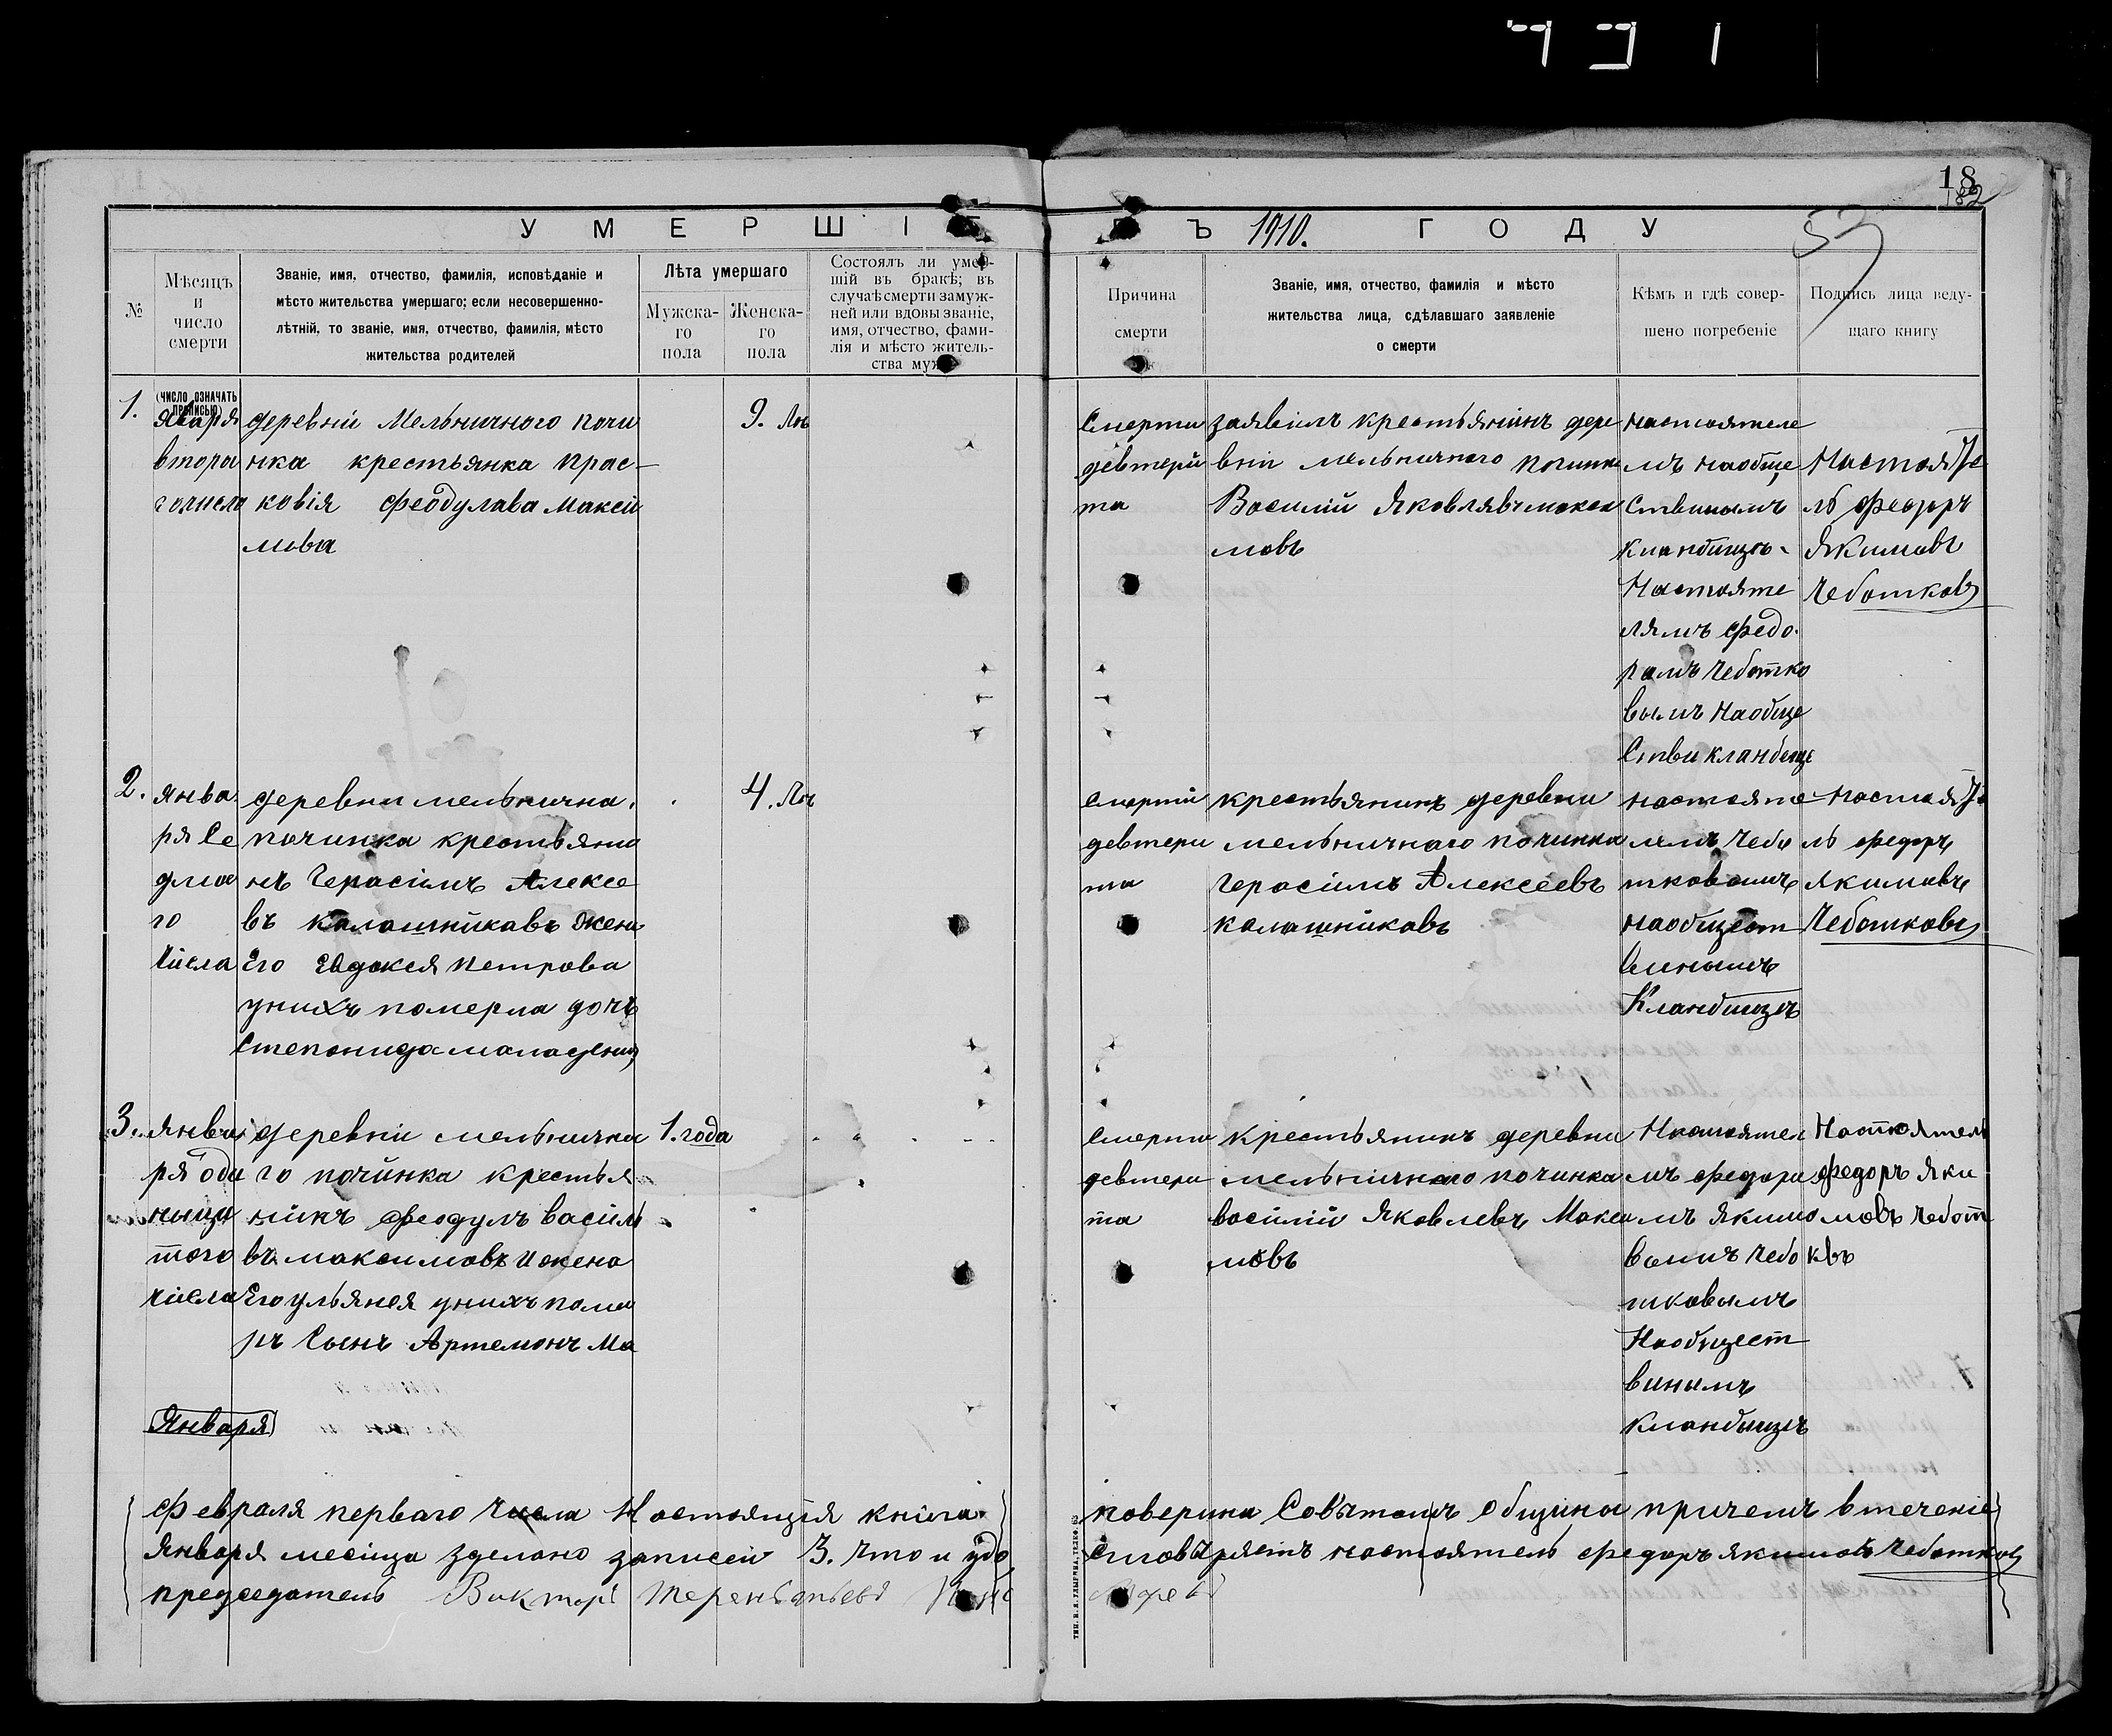 18
182
УМЕРШІЕ ВЪ 1910. ГОДУ
57
№
Мѣсяцъ и число смерти
Званіе, имя, отчество, фамилія, исповѣданіе и
мѣсто жительства умершаго; если несовершенно-
лѣтній, то званіе, имя, отчество, фамилія, мѣсто
жительства родителей
Лѣта умершаго
Мужска-
го
пола
Женска-
го
пола
Состоялъ ли умер-
шій въ бракѣ; въ
случаѣ смерти замуж-
ней или вдовы званіе,
имя, отчество, фами-
лія и мѣсто житель-
ства мужа
Причина
смерти
Званіе, имя, отчество, фамилія и мѣсто
жительства лица, сдѣлавшаго заявленіе
о смерти
Кѣмъ и гдѣ совер-
шено погребеніе
Подпись лица веду-
щаго книгу
(число означать
прописью)
1.
января
втора
гочисла
деревни Мельничного почи
нка крестьянка Прас-
ковія Феодулава Макси
мова
9. Лѣ
Смерти
девтери
та
заявилъ крестьянинъ дере
вни мельничного починка
Василий Яковлявъ макси
мовъ
настоятеле
мъ наобще
Ствинымъ
кланбищъ.
Настояте
лямъ Федо.
рамъ Чеботко
вымъ Наобще
Стви кланбище
НастояТе
ль Феодоръ
Якимовъ
Чеботковъ
2.
янва
ря Се
дмо
го
Числа
деревни мельнична.
починка крестьяни
нъ Герасимъ Алексе
въ калашникавъ жена
Его Евдокея Петрова
унихъ померла дочь
Степонида
4. Лѣ
Смерти
девтери
та
крестьянинъ деревни
мельничнаго починка
Герасимъ Алексеевъ
калашниковъ
настояте
лемъ Чебо
тковымъ
наобщест
винымъ
Кланбищъ
настояТе
ль федоръ
якимовъ
Чеботковъ
3.
янва
ря оди
ныца
того
числа
деревни мельнична
го починка крестья
нинъ Феодулъ васили
въ максимовъ и жена
Его ульянея унихъ поме
ръ Сынъ Артемонъ Ма
1. года
Смерти
девтери
та
крестьянинъ деревни
мельничнаго починка
василий Яковлевъ Макси
мовъ
Настояте
мъ федора
мъ якимо
вымъ Чебо
тковымъ
Наобщест
винымъ
кланбищъ
Настоятель
федоръ Яки
мовъ Чебот
квъ
Января
Февраля перваго числа Настоящія книга поверина Совѣтомъ Общины причемъ втечение
Января месица зделано записей 3. что и удо стовѣряетъ настоятель федоръ якимовъ Чеботковъ
председатель Викторъ Терентьевъ